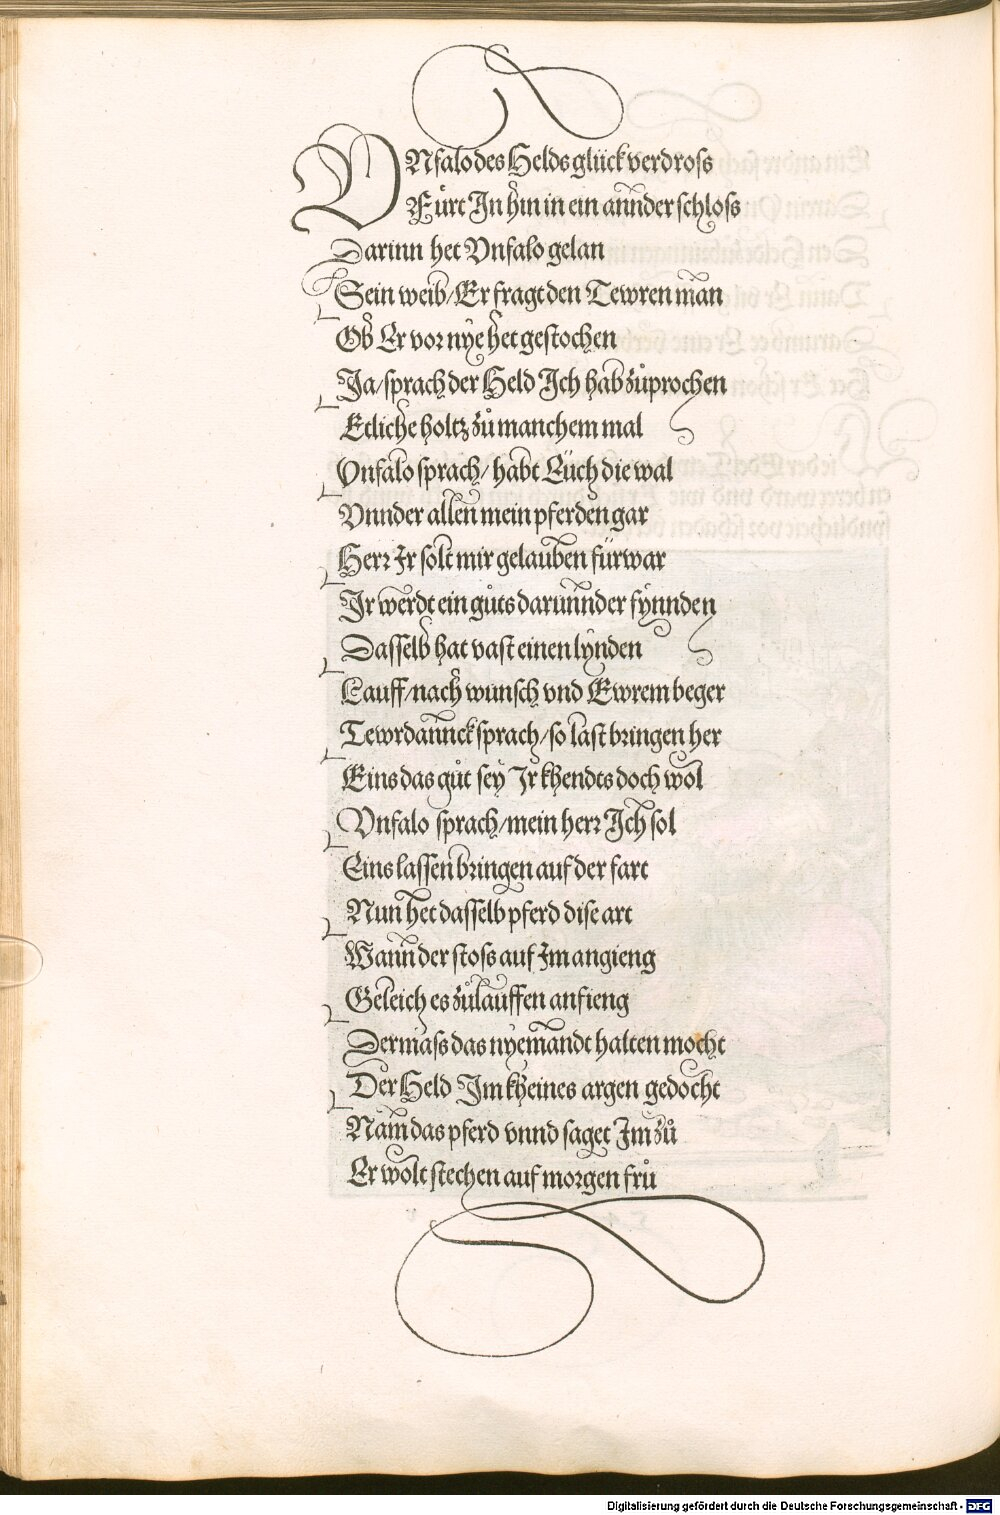 VNfalo des Helds glück verdross
Fůrt Jn hin in ein annder schloss
Darinn het Vnfalo gelan
Sein weib/Er fragt den Tewren man
Ob Er vor nye het gestochen
Ja/sprach der Held Jch hab zůprochen
Etliche holtz zů manchem mal
Vnfalo sprach/habt Euch die wal
Vnnder allen mein pferden gar
Herr Jr solt mir gelauben fürwar
Jr werdt ein gůts darunnder fynnden
Dasselb hat vast einen lynden
Lauff/nach wunsch vnd Ewrem beger
Tewrdannck sprach/so last bringen her
Eins das gůt sey Jr khendts doch wol
Vnfalo sprach/mein herr Jch sol
Eins lassen bringen auf der fart
Nun het dasselb pferd dise art
Wann der stoss auf Jm angieng
Geleich es zůlauffen anfieng
Dermass das nyemandt halten mocht
Der Held Jm kheines argen gedocht
Nam das pferd vnnd saget Jm zů
Er wolt stechen auf morgen frů
Digitalisierung gefördert durch die Deutsche Forschungsgemeinschaft - DFG